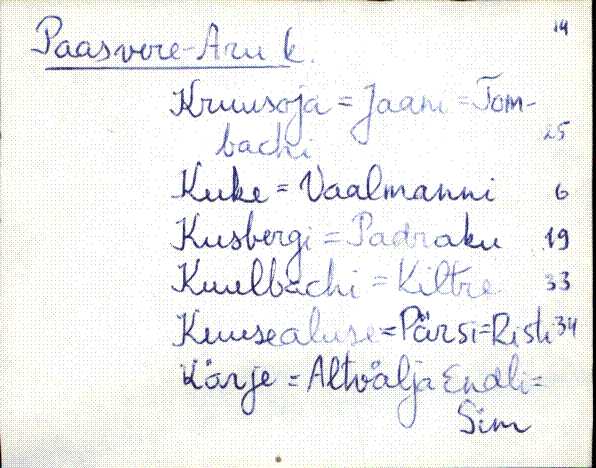 14
Paasvere-Aru k.
Kruusoja = Jaani = Tom-
bachi 25
Kuke = Vaalmanni 6
Kusbergi = Padraku 19
Kuulbachi = Kiltre 33
Kuusealuse = Pärsi = Risti 34
Kärje = Altvälja Endli =
Sim